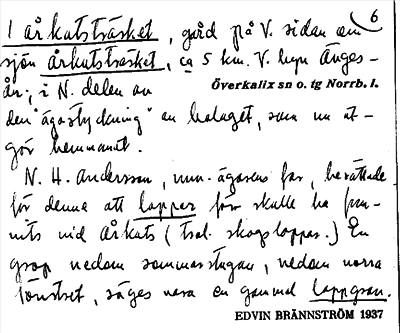 6
1 årkatsträsket, gård på V. sidan om
sjön årkatsträsket, ca 5 km. V. byn Änges-
ån; i N. delen av
Överkalix sn o. tg Norrb. l.
den "ägostyckning" av bolaget, som nu ut-
gör hemmanet.
N. H. Andersson, nuv. ägarens far, berättade
för denne att lappar förr skulle ha fun-
nits vid Årkats (trol. skogslappar.) En
grop nedom sommarstugan, nedom norra
fönstret, säges vara en gammal lappgrav.
EDVIN BRÄNNSTRÖM 1937